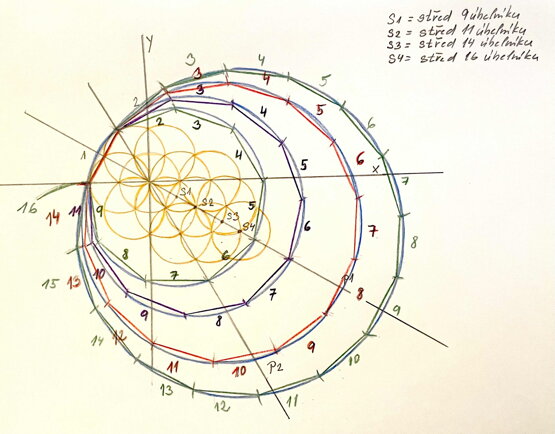 S1 = střed 9úhelníku
S2 = střed 11úhelníku
S3 = střed 14úhelníku
S4 = střed 16úhelníku
Y
3 4
3 4 5
2 3 4 5 6
2 3 6
1 4 5 X 7
S1
16 14 11 9 S2 5 6 7 8
S3
S4
8 6
15 13 10 7 7 P1 8 9
9 8
14 12 9 10
11 10 P2
13 12 11